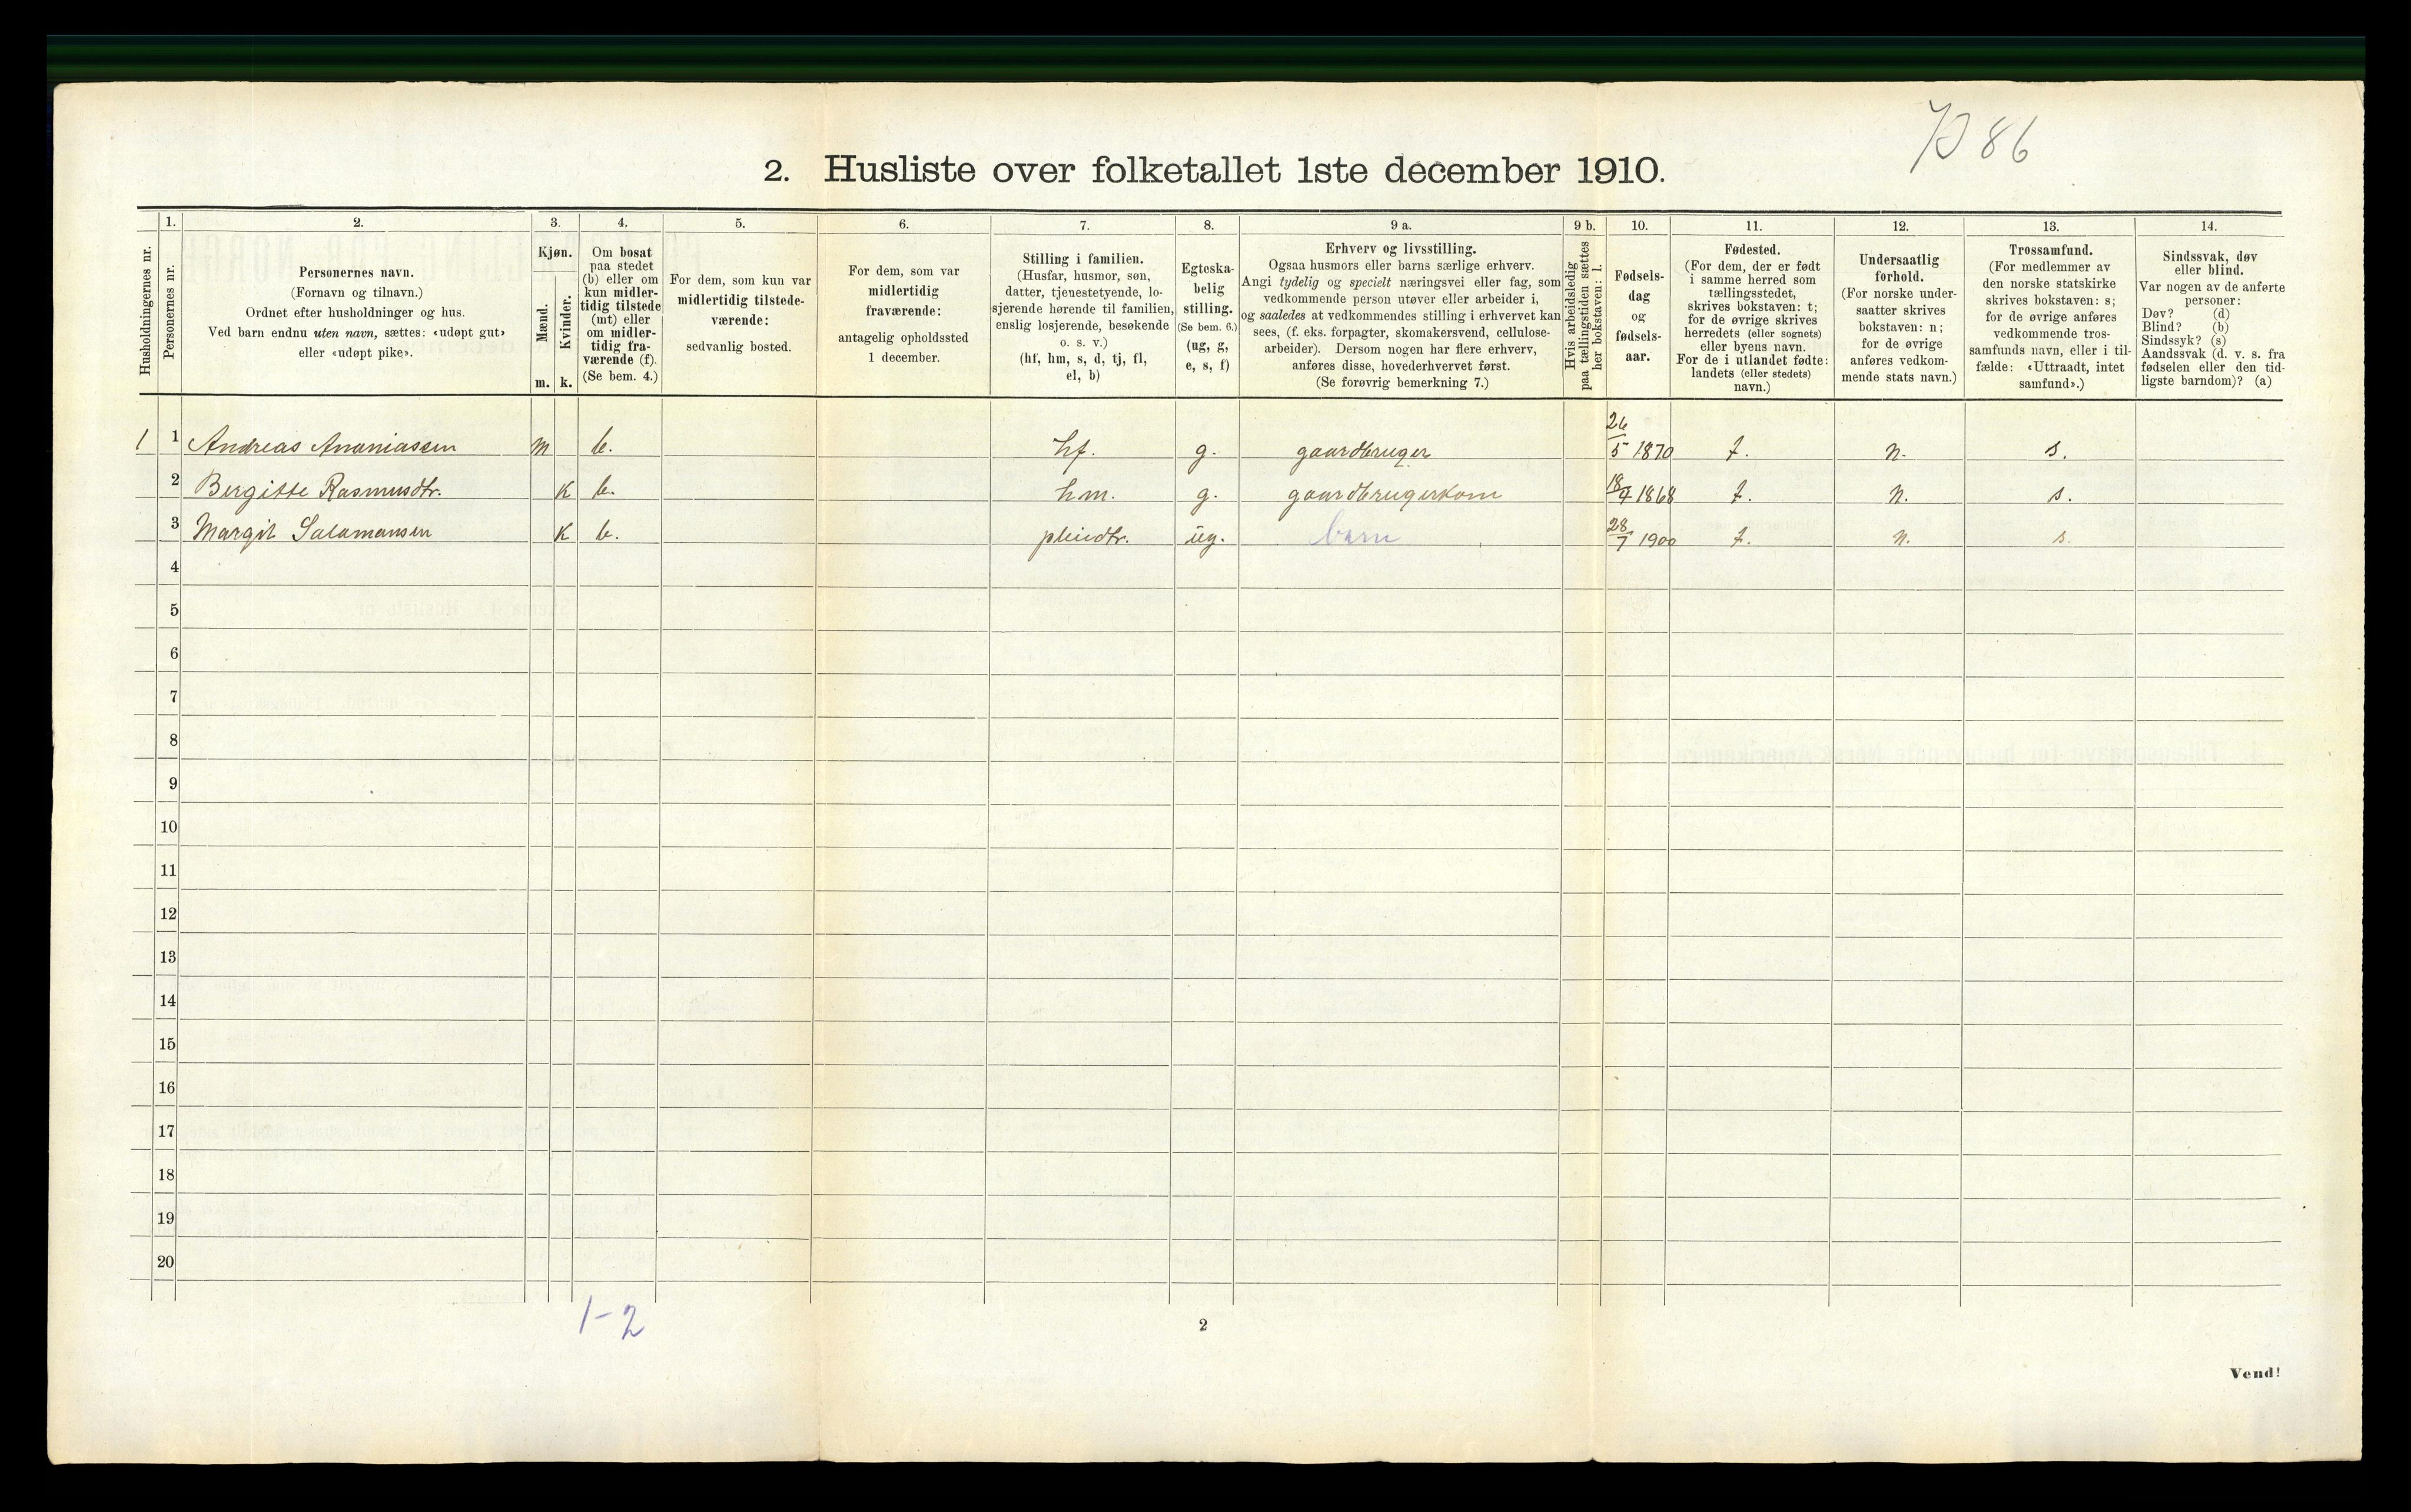 86
2. Husliste over folketallet 1ste december 1910.
Husholdningernes nr.
1.
Personernes nr.
2.
Personernes navn.
(Fornavn og tilnavn.)
Ordnet efter husholdninger og hus.
Ved barn endnu uten navn, sættes: «udøpt gut»
eller «udøpt pike».
3.
Kjøn.
Mænd.
Kvinder.
m. k.
4.
Om bosat
paa stedet
(b) eller om
kun midler-
tidig tilstede
(mt) eller
om midler-
tidig fra-
værende (f).
(Se bem. 4.)
5.
For dem, som kun var
midlertidig tilstede-
værende:
sedvanlig bosted.
6.
For dem, som var
midlertidig
fraværende:
antagelig opholdssted
1 december.
7.
Stilling i familien.
(Husfar, husmor, søn,
datter, tjenestetyende, lo-
sjerende hørende til familien,
enslig losjerende, besøkende
o. s. v.)
(hf, hm, s, d, tj, fl,
el, b)
8.
Egteska-
belig
stilling.
(Se bem. 6.)
(ug, g,
e, s, f)
9 a.
Erhverv og livsstilling.
Ogsaa husmors eller barns særlige erhverv.
Angi tydelig og specielt næringsvei eller fag, som
vedkommende person utøver eller arbeider i,
og saaledes at vedkommendes stilling i erhvervet kan
sees, (f. eks. forpagter, skomakersvend, cellulose-
arbeider). Dersom nogen har flere erhverv,
anføres disse, hovederhvervet først.
(Se forøvrig bemerkning 7.)
9 b.
Hvis arbeidsledig
paa tællingstiden sættes
her bokstaven: l.
10.
Fødsels-
dag
og
fødsels-
aar.
11.
Fødested.
(For dem, der er født
i samme herred som
tællingsstedet,
skrives bokstaven: t;
for de øvrige skrives
herredets (eller sognets)
eller byens navn.
For de i utlandet fødte:
landets (eller stedets)
navn.)
12.
Undersaatlig
forhold.
(For norske under-
saatter skrives
bokstaven: n;
for de øvrige
anføres vedkom-
mende stats navn.)
13.
Trossamfund.
(For medlemmer av
den norske statskirke
skrives bokstaven: s;
for de øvrige anføres
vedkommende tros-
samfunds navn, eller i til-
fælde: «Uttraadt, intet
samfund».)
14.
Sindssvak, døv
eller blind.
Var nogen av de anførte
personer:
Døv? (d)
Blind? (b)
Sindssyk? (s)
Aandssvak (d. v. s. fra
fødselen eller den tid-
ligste barndom)? (a)
1 1 Andreas Ananiassen m b. hf. g. gaardbruger 26/5 1870 t. n. s.
2 Bergitte Rasmusdtr. K b. hm. g. gaardbrugerkone 1868 t. n. s.
3 Margit Salamonsen K b. pleiedtr. ug. barn 28/7 1900 t. n. s.
4
5
6
7
8
9
10
11
12
13
14
15
16
17
18
19
20
1-2
2
Vend!